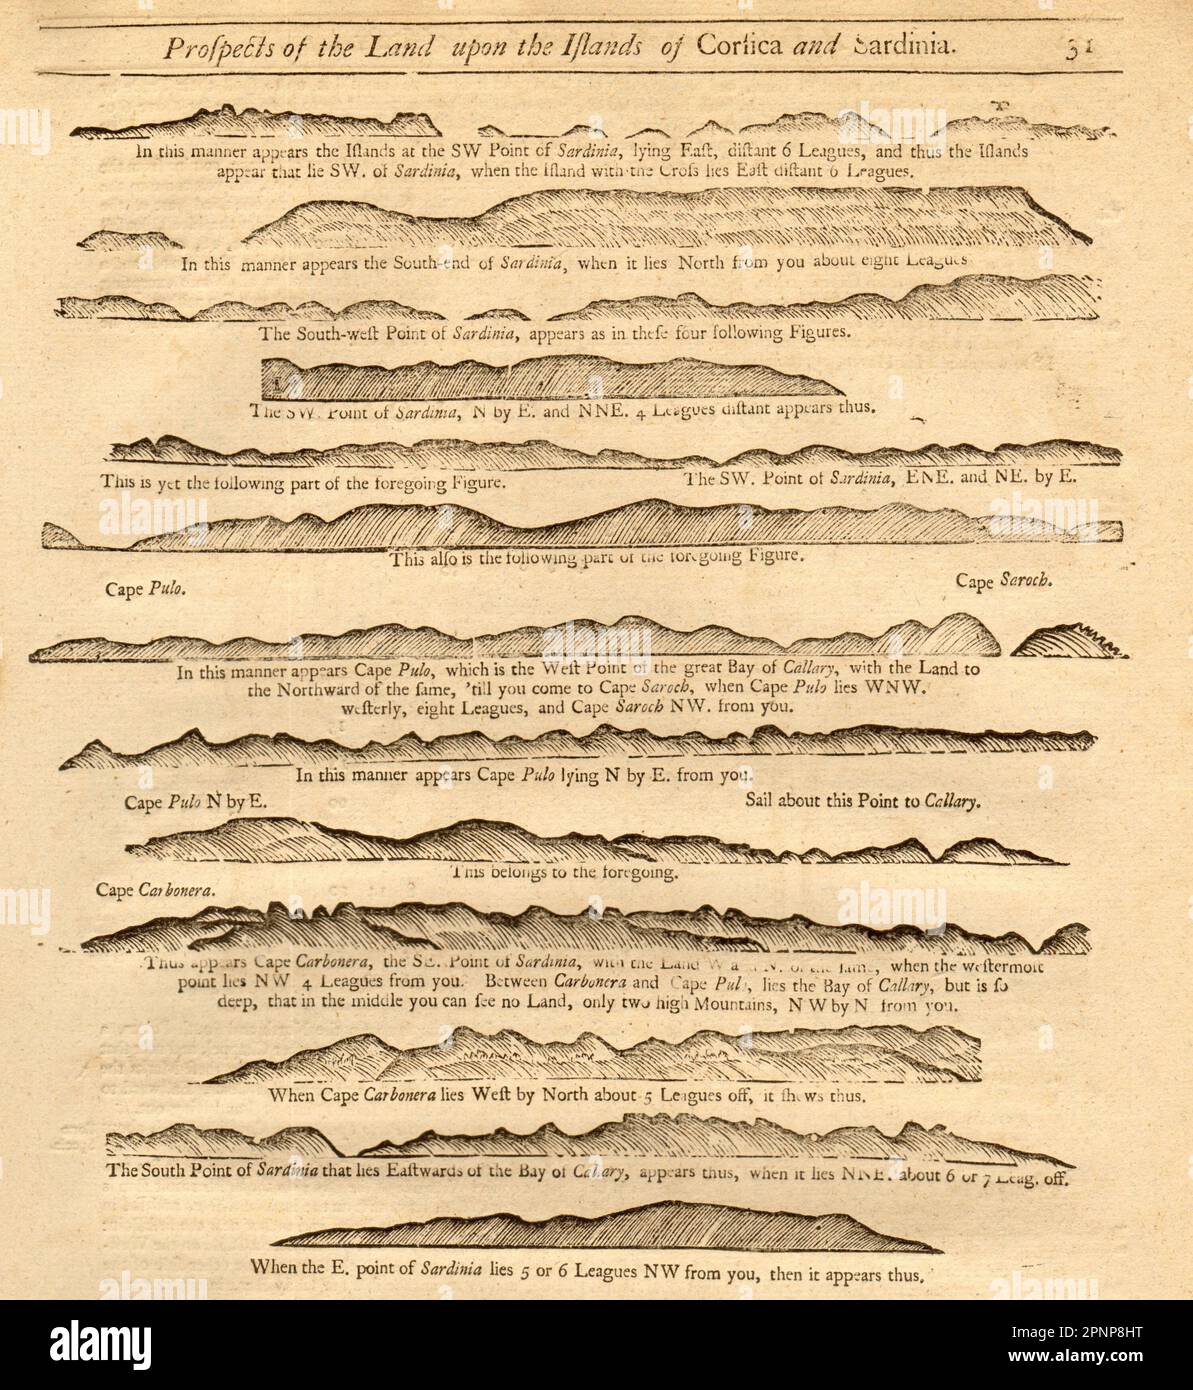 Proſpects of the Land upon the Iſlands of Corſica and Sardinia. 31
In this manner appears the Iſlands at the SW Point of Sardinia, lying Eaſt, diſtant 6 Leagues, and thus the Iſlands
appear that lie SW. of Sardinia, when the Iſland with the Croſs lies Eaſt diſtant 6 Leagues.
In this manner appears the South-end of Sardinia, when it lies North from you about eight Leagues
The South-weſt Point of Sardinia, appears as in theſe four following Figures.
The SW. Point of Sardinia, N by E. and NNE. 4 Leagues diſtant appears thus.
This is yet the following part of the foregoing Figure. The SW. Point of Sardinia, ENE. and NE. by E.
This alſo is the following part of the foregoing Figure.
Cape Pulo. Cape Saroch.
In this manner appears Cape Pulo, which is the Weſt Point of the great Bay of Callary, with the Land to
the Northward of the ſame, 'till you come to Cape Saroch, when Cape Pulo lies WNW.
weſterly, eight Leagues, and Cape Saroch NW. from you.
In this manner appears Cape Pulo lying N by E. from you.
Cape Pulo N by E. Sail about this Point to Callary.
This belongs to the foregoing.
Cape Carbonera.
Thus appears Cape Carbonera, the SE. Point of Sardinia, with the Land of the ſame, when the weſtermoſt
point lies NW 4 Leagues from you. Between Carbonera and Cape Pulo, lies the Bay of Callary, but is ſo
deep, that in the middle you can ſee no Land, only two high Mountains, NW by N from you.
When Cape Carbonera lies Weſt by North about 5 Leagues off, it ſhews thus.
The South Point of Sardinia that lies Eaſtwards of the Bay of Callary, appears thus, when it lies NNE. about 6 or 7 Leag. off.
When the E. point of Sardinia lies 5 or 6 Leagues NW from you, then it appears thus.
alamy
Image ID: 2PNP8HT
www.alamy.com